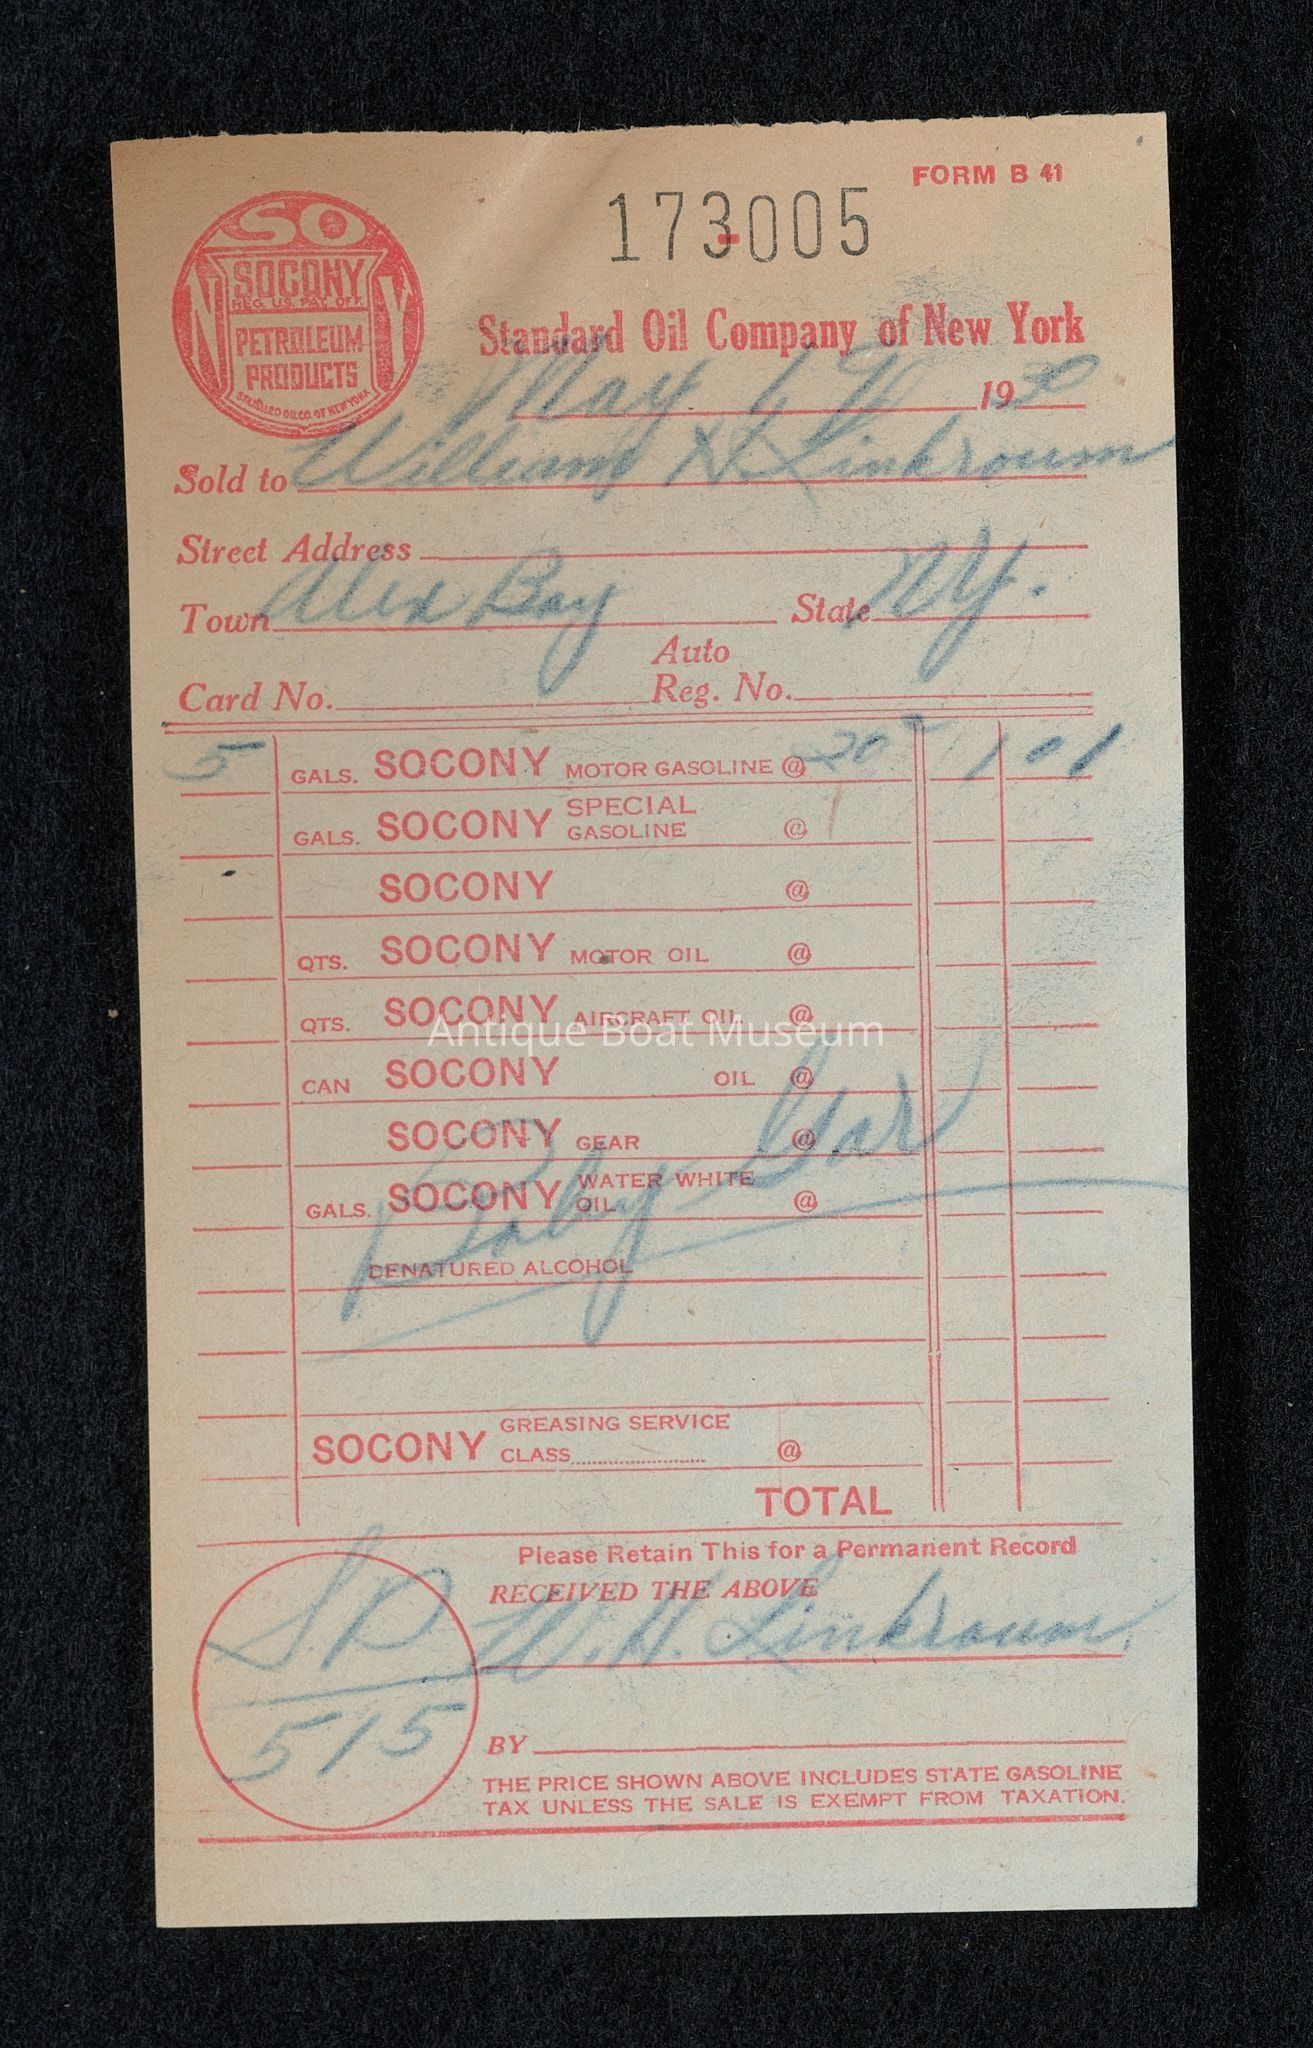 FORM B 41
173-005
SO
N Y
SOCONY
REG. U.S. PAT. OFF.
PETROLEUM
PRODUCTS
STANDARD OIL CO. OF NEW YORK
Standard Oil Company of New York
May 6 19 30
Sold to William H Linkroum
Street Address
Town Alex Bay State NY.
Auto
Card No. Reg. No.
5 GALS. SOCONY MOTOR GASOLINE @ 20 1 01
GALS. SOCONY SPECIAL GASOLINE @
SOCONY @
QTS. SOCONY MOTOR OIL @
QTS. SOCONY AIRCRAFT OIL @
Antique Boat Museum
CAN SOCONY OIL @
SOCONY GEAR @
GALS. SOCONY WATER WHITE OIL @
Baby Gar
DENATURED ALCOHOL
SOCONY GREASING SERVICE
CLASS @
TOTAL
Please Retain This for a Permanent Record
RECEIVED THE ABOVE
S.P W. H. Linkroum
515
BY
THE PRICE SHOWN ABOVE INCLUDES STATE GASOLINE
TAX UNLESS THE SALE IS EXEMPT FROM TAXATION.